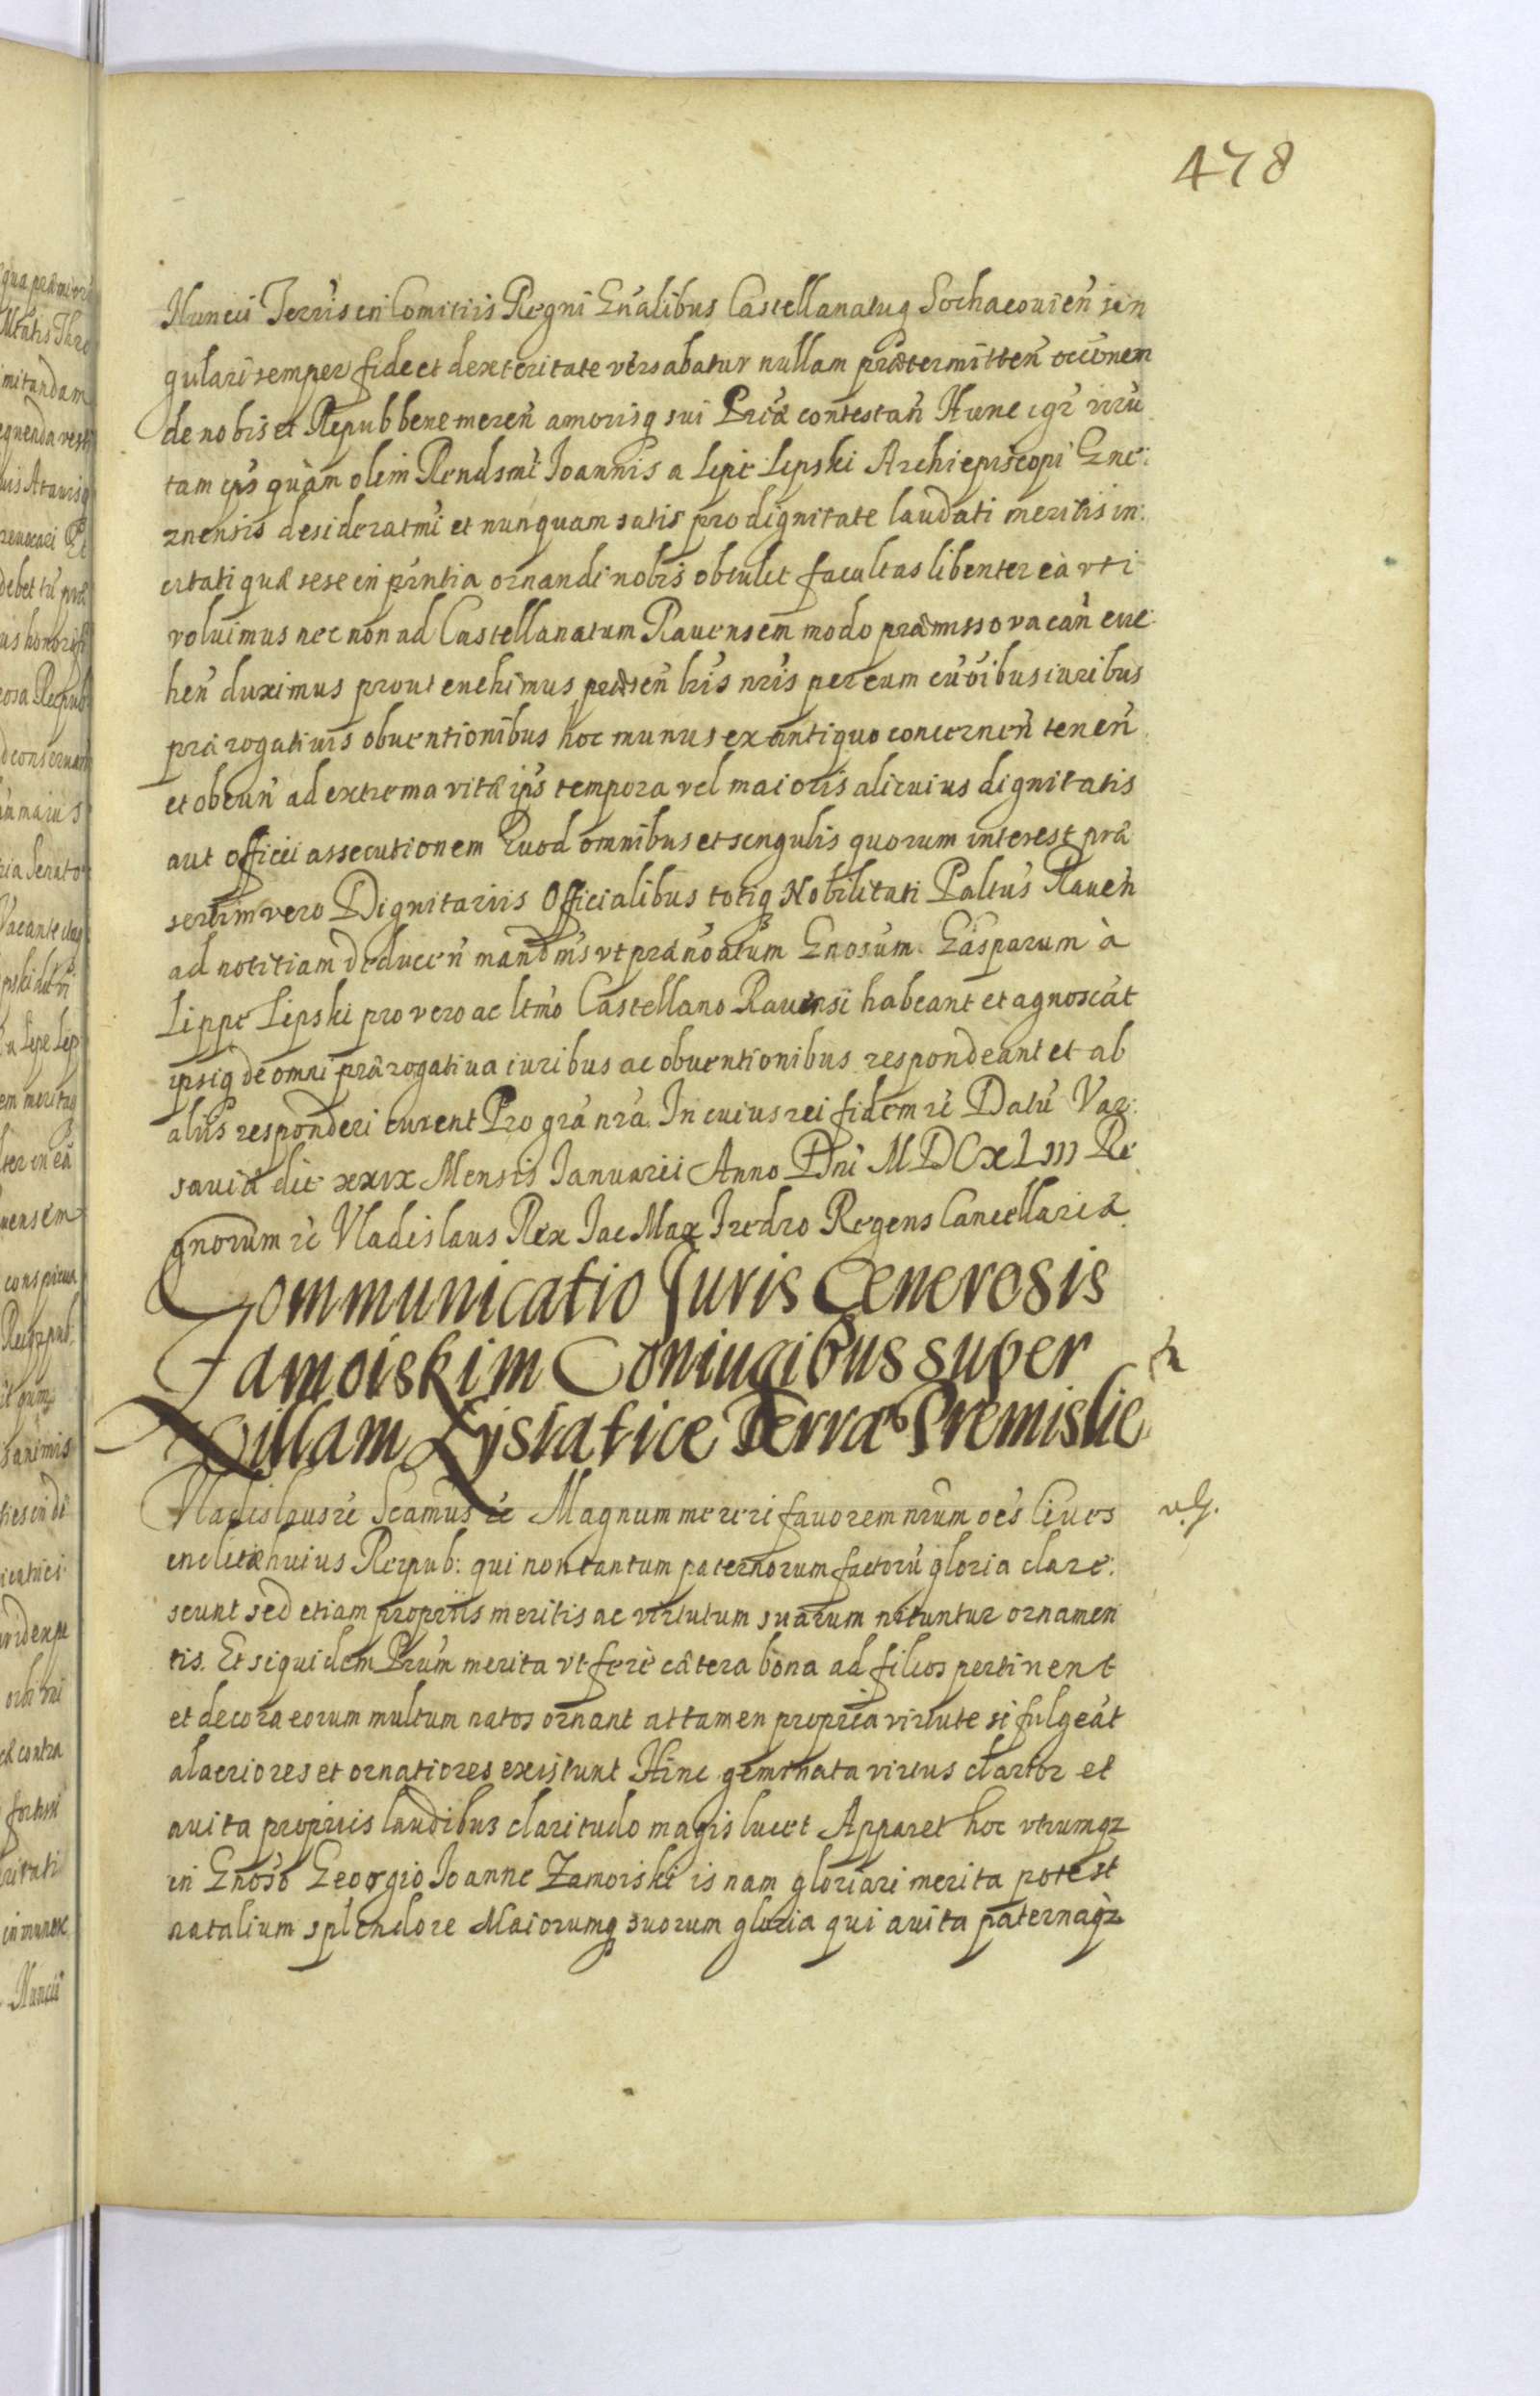 478
Nuncii Terr̃is in Comitiis Regni Gñalibus Castellanatuq Sochaceuieñ sin
gulari semper fide et dexteritate versabatur nullam prætermitteñ occõnem
de nobis et Repub bene mereñ amorisq sui Priæ contestañ Hunc igr̃ virũ
tam ips̃ quàm olim Rendsmi Ioannis a Lipie Lipski Archiepiscopi Gne:
znensis desideratmi et nunquam satis pro dignitate laudati meritis in:
citati quæ sese in pr̃ntia ornandi nobis obtulit facultas libenter eà vti
voluimus nec non ad Castellanatum Rauensem modo præmisso vacañ eue:
heñ duximus prout euehimus præseñ lrĩs nrĩs per eum cũ oĩbus iuribus
prærogatiuis obuentionibus hoc munus ex antiquo concerneñ teneñ
et obeuñ ad extrema vitæ ips̃ tempora vel maioris alicuius dignitatis
aut officii assecutionem Quod omnibus et singulis quorum interest præ
sertim vero Dignitariis Officialibus totiq Nobilitati Paltus Raueñ
ad notitiam deduceñ mandms vt prænoatum Gnosum Gasparum à
Lippe Lipski pro vero ac ltmo Castellano Rauensi habeant et agnoscãt
ipsiq de omni prærogatiua iuribus ac obuentionibus respondeant et ab
aliis responderi curent Pro gra nra. In cuius rei fidem rc̃ Datũ Var:
sauiæ die xxix Mensis Ianuarii Anno Dni MDCXLIII Re
gnorum rc̃ Vladislaus Rex Iac Max Fredro Regens Cancellariæ
Communicatio Juris Generosis
Zamoiskim Coniugibus super
Villam Lystatice Terræ Premislie
Vladislaus rc̃ Scamus rc̃ Magnum mereri fauorem nrum oẽs Ciues
inclitæ huius Reipub: qui non tantum paternorum factorũ gloria clare:
scunt sed etiam propriis meritis ac virtutum suarum nituntur ornamen
tis. Et siquidem Prum merita vt ferè cætera bona ad filios pertinent
et decora eorum multum natos ornant attamen propria virtute si fulgeãt
alacriores et ornatiores existunt Hinc geminata virtus clarior et
auita propriis laudibus claritudo magis lucet Apparet hoc vtrumqz
in Gnoso Georgio Ioanne Zamoiski is nam gloriari merita potest
natalium splendore Maiorumq suorum gloria qui auita paternaqz